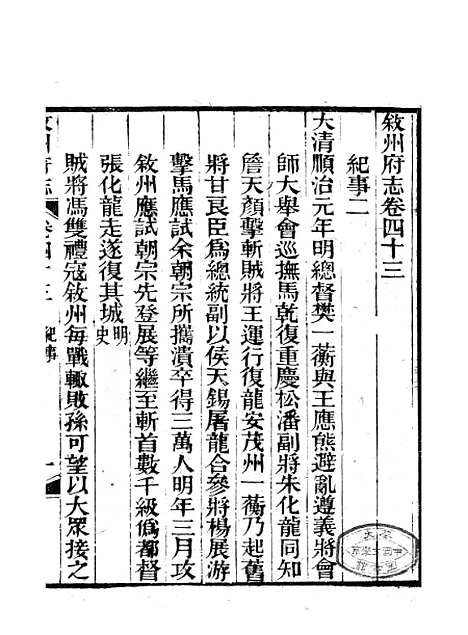 敘州府志卷四十三
紀事二
大清順治元年明總督樊一蘅與王應熊避亂遵義將會
師大舉會巡撫馬乾復重慶松潘副將朱化龍同知
詹天顏擊斬賊將王運行復龍安茂州一蘅乃起舊
將甘良臣爲總統副以侯天錫屠龍合參將楊展游
擊馬應試余朝宗所攜潰卒得三萬人明年三月攻
敘州應試朝宗先登展等繼至斬首數千級僞都督
張化龍走遂復其城明史
賊將馮雙禮寇敘州每戰輙敗孫可望以大眾接之
敘州府志
卷四十三 紀事
一